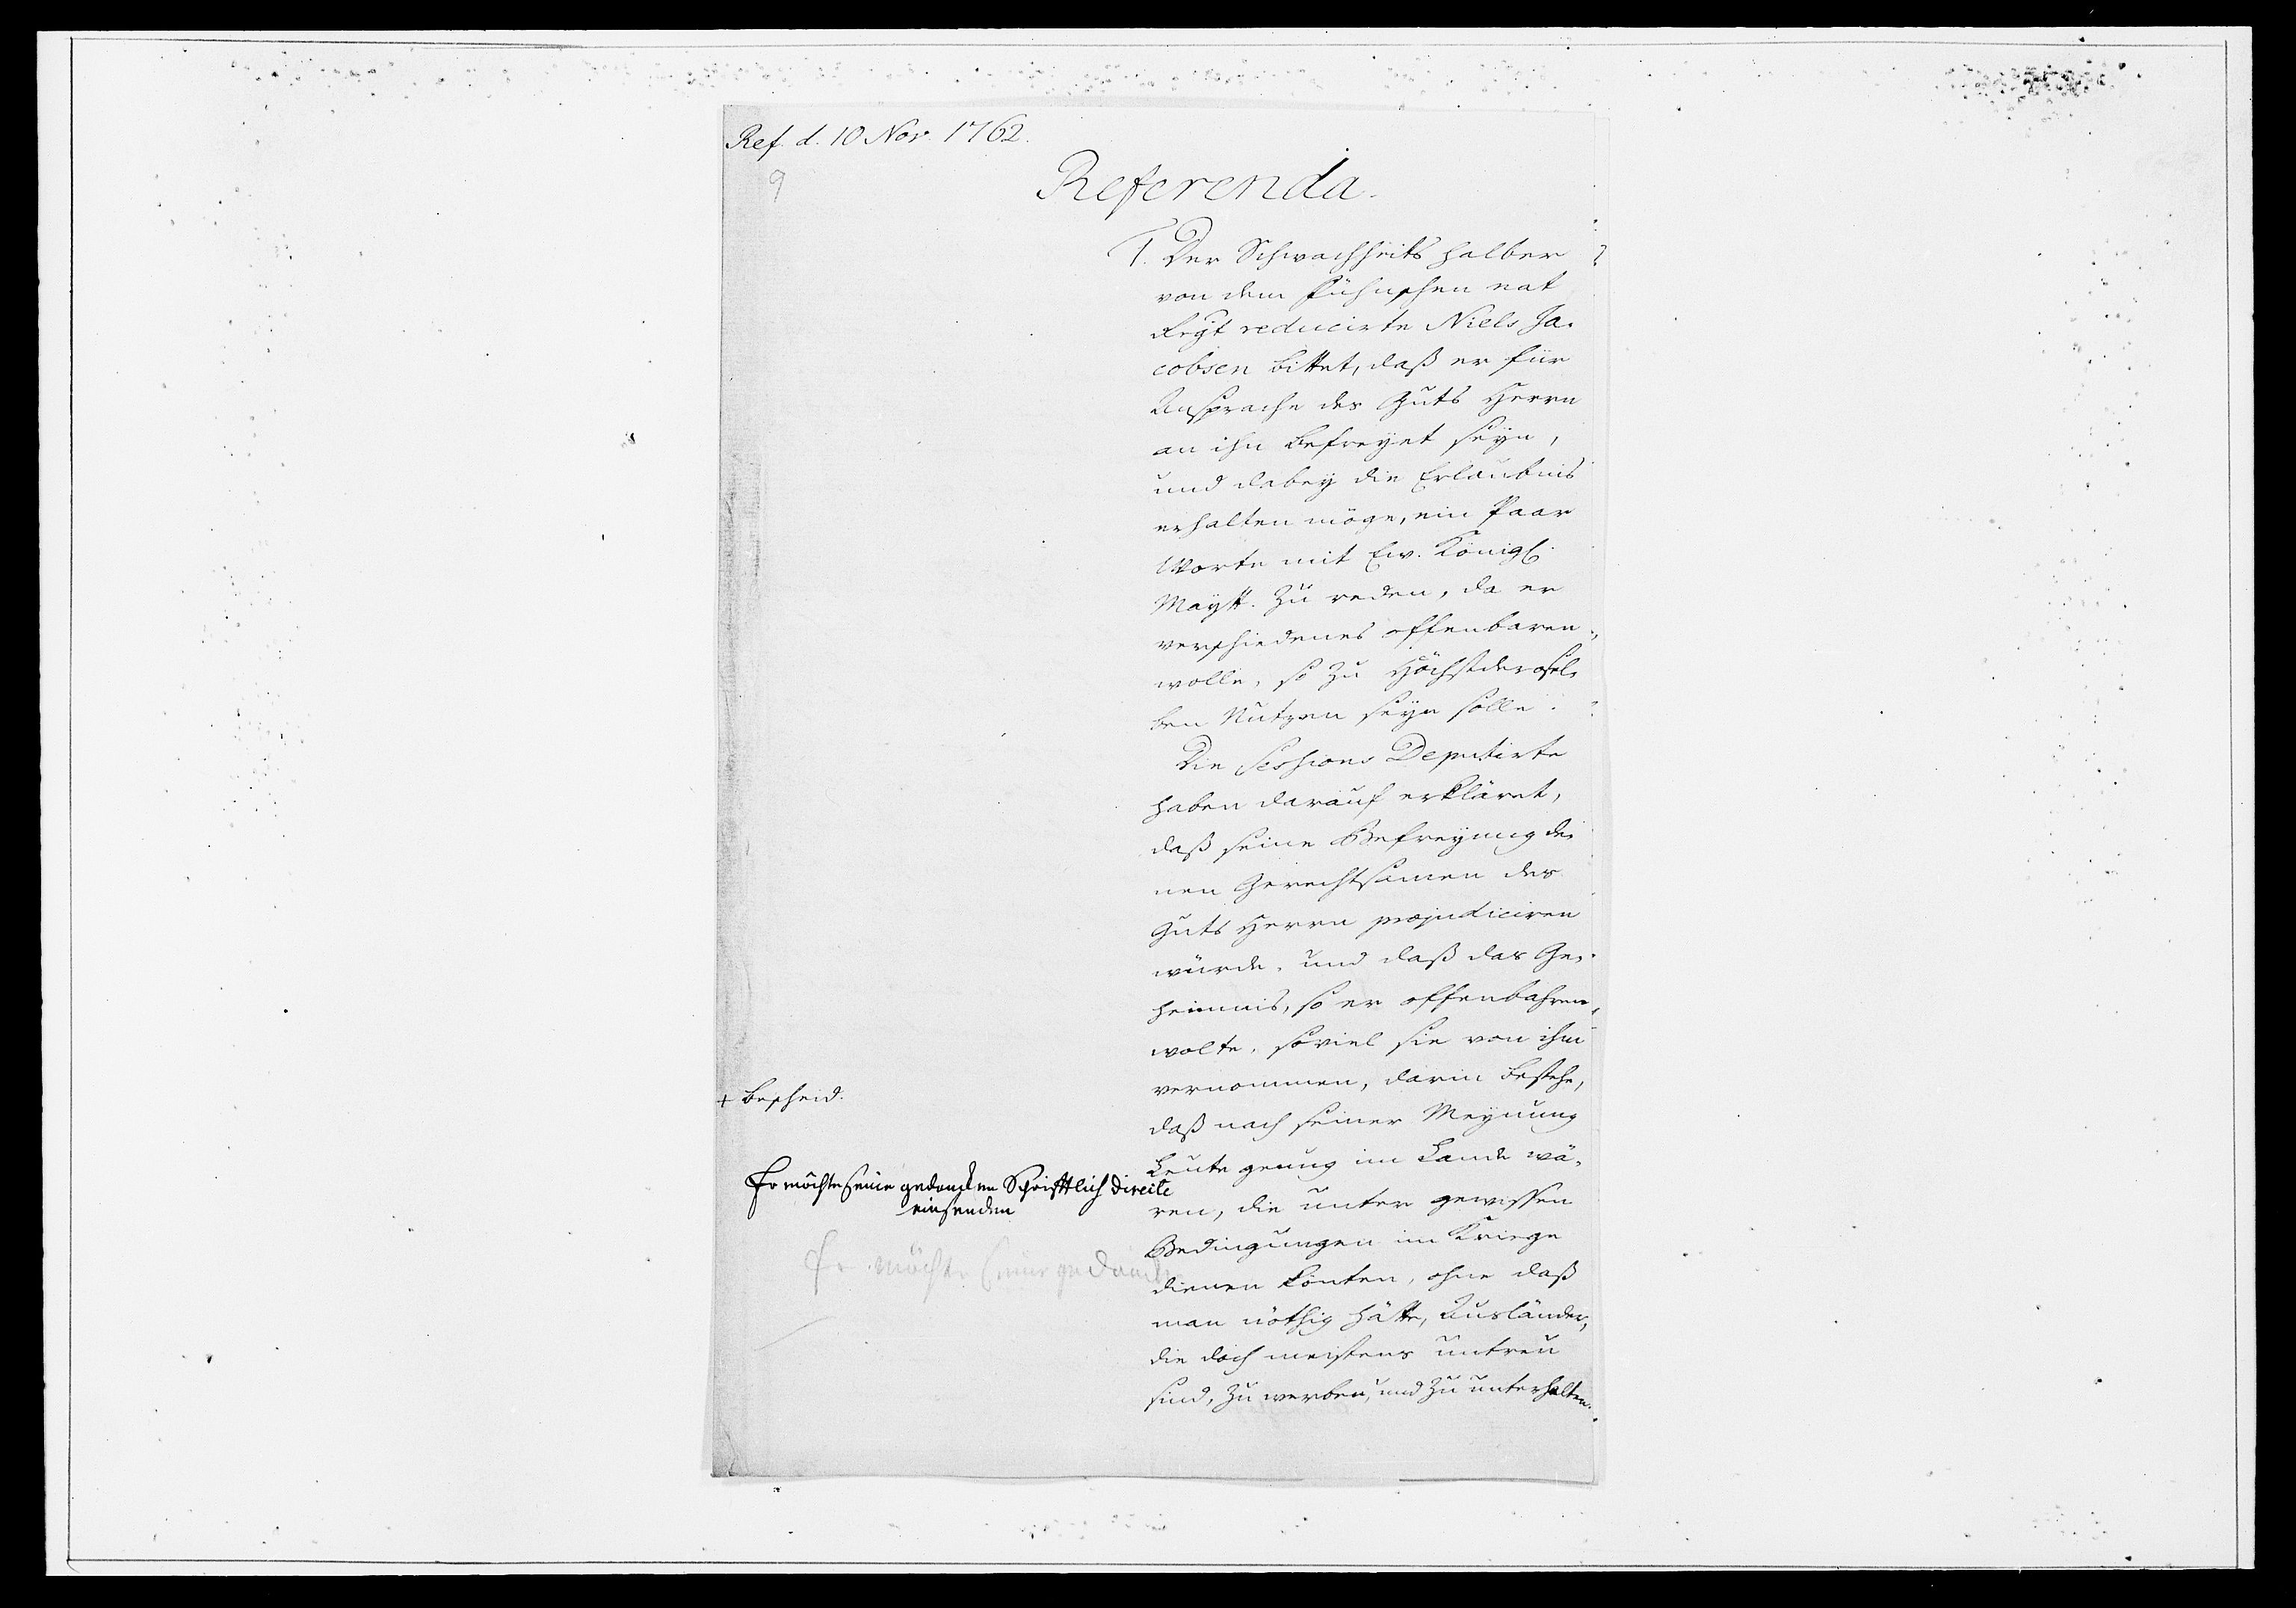 Ref. d. 10 Nov. 1762.
9
Referenda.
1. Der Schwachheits halber
von dem Fühnschen nat
Regt reducirte Niels Ja-
cobsen bittet, daß er für
Ansprache des Guts Herrn
an ihn befreyet seyn,
und dabey die Erlaubnis
erhalten möge, ein Paar
Worte mit Ew. Königl.
Maytt. zu reden, da er
verschiedenes offenbaren
wolle, so zu Höchstderosel-
ben Nutzen seyn solle.
Die Sessions Deputirte
haben darauf erkläret,
daß seine Befreyung de-
nen Gerechtsamen des
Guts Herrn præjudiciren
würde, und daß das Ge-
heimnis, so er offenbahren
wolte, soviel sie von ihm
vernommen, darin bestehe,
daß nach seiner Meynung
Leute genug im Lande wä-
ren, die unter gewissen
Bedingungen im Kriege
dienen könten, ohne daß
man nöthig hätte, Ausländer,
die doch meistens untreu
sind, zu werben, und zu unterhalten.
+ Bescheid.
Er möchte seine gedancken Schrifftlich directe
einsenden
Er möchte seine gedancken